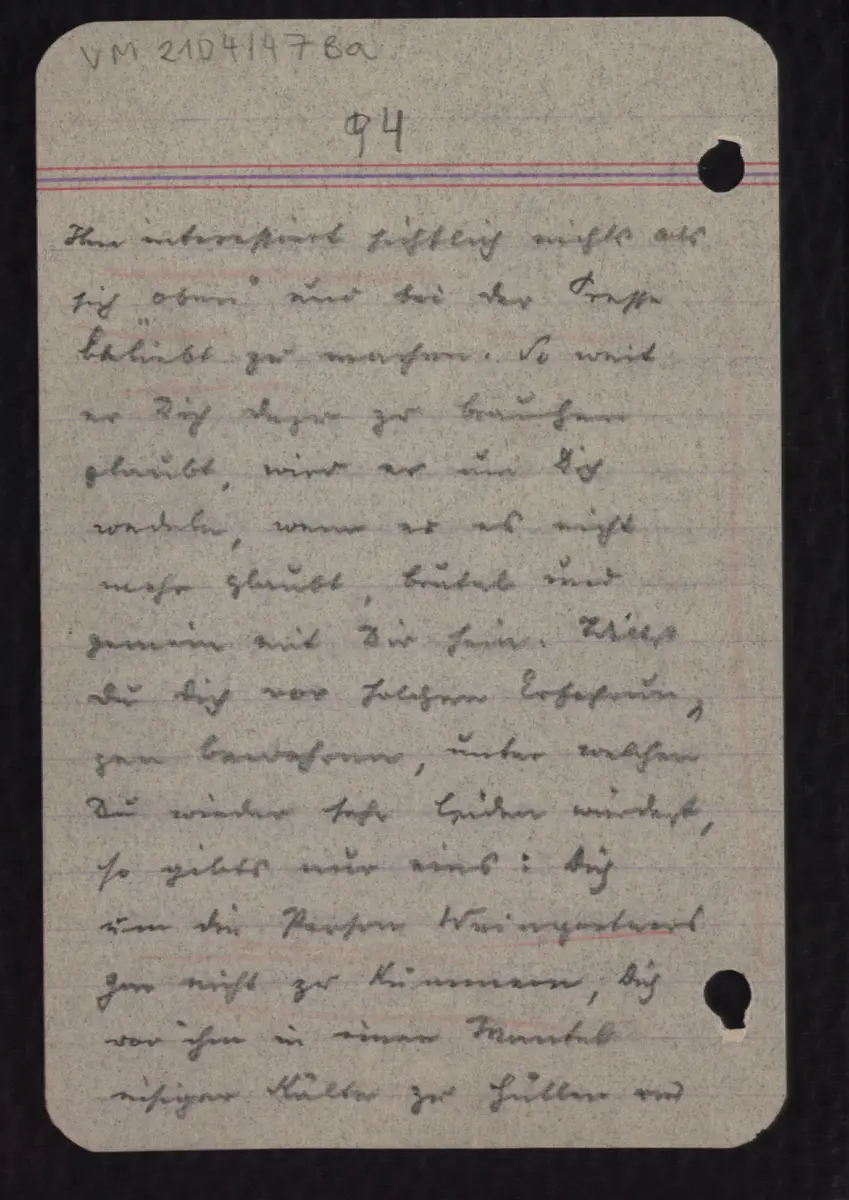 VM 2104/47 Ba
94
Ihn interessiert sichtlich nichts als
sich „oben“ und bei der Presse
beliebt zu machen. So weit
er Dich dazu zu brauchen
glaubt, wird er um Dich
wedeln, wenn er es nicht
mehr glaubt, brutal und
gemein mit Dir sein. Willst
Du Dich vor solchen Erfahrun,
gen bewahren, unter welchen
Du wieder sehr leiden würdest,
so gibts nur eins: Dich
um die Person Weingartners
gar nicht zu kümmern, Dich
vor ihm in einen Mantel
eisiger Kälte zu hüllen und